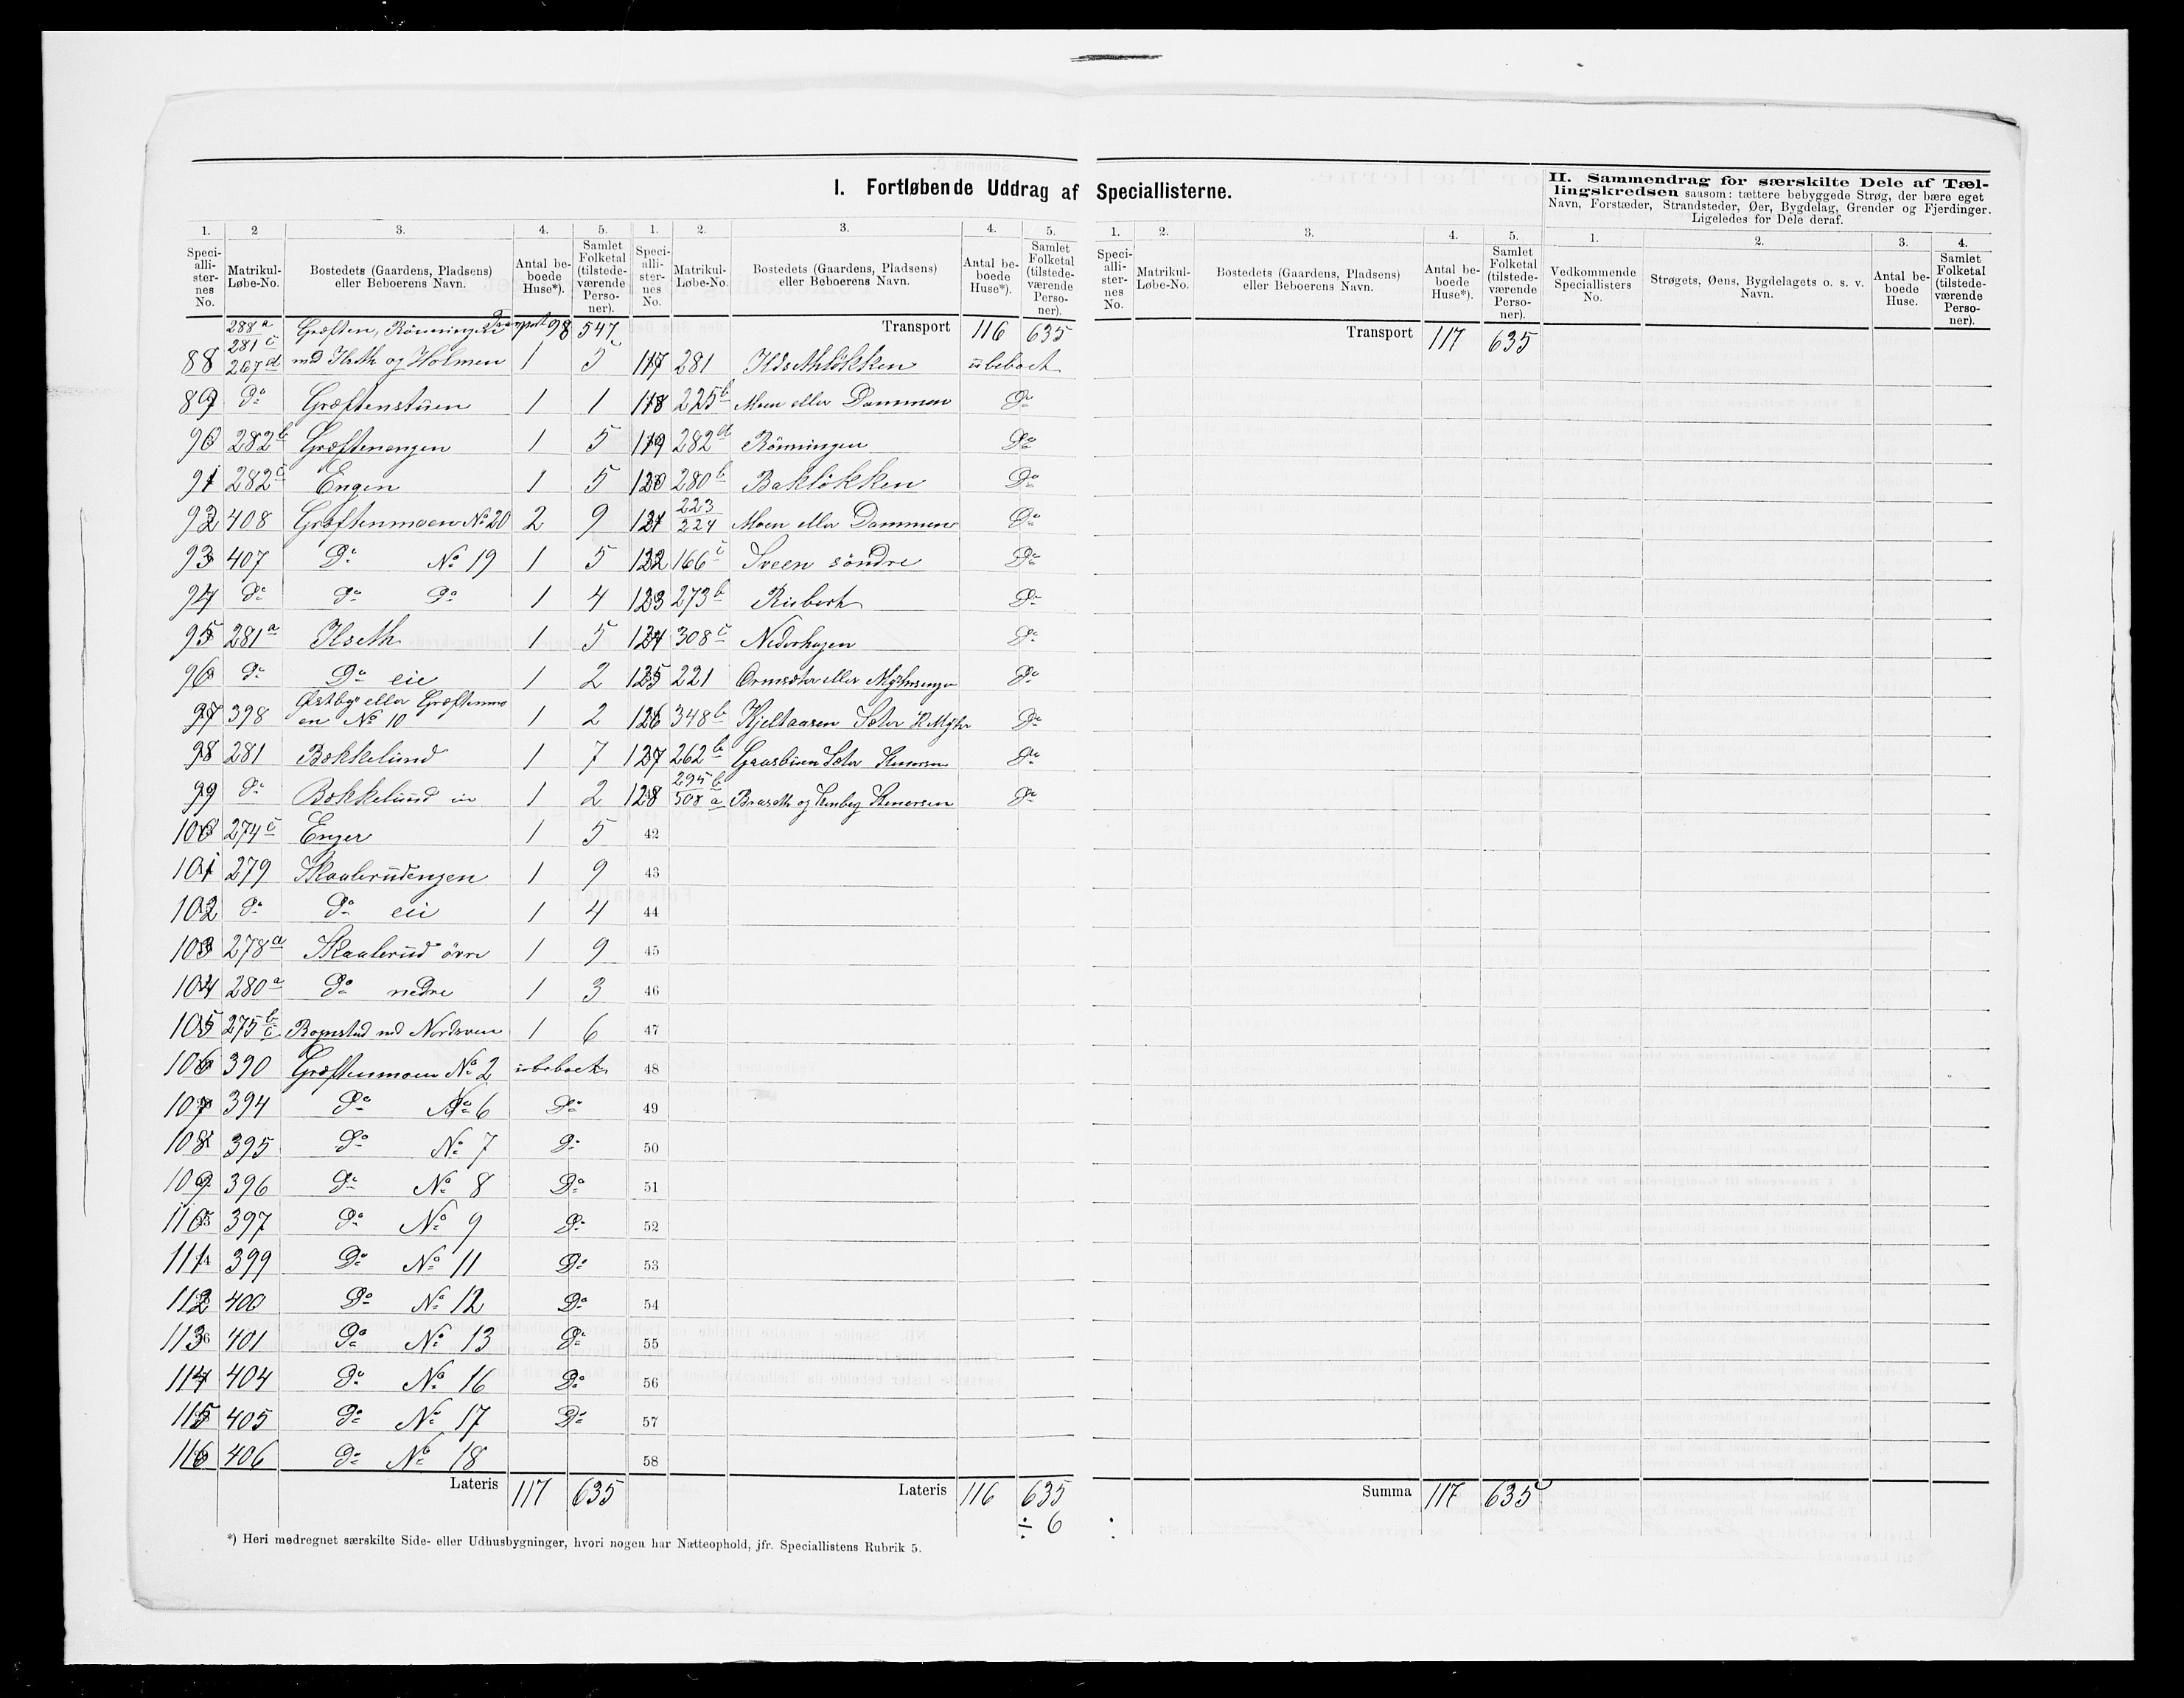 I. Fortløbende Uddrag af Speciallisterne.
II. Sammendrag for særskilte Dele af Tæl-
lingskredsen saasom: tættere bebyggede Strøg, der bære eget
Navn, Forstæder, Strandsteder, Øer, Bygdelag, Grender og Fjerdinger.
Ligeledes for Dele deraf.
1. 2 3. 4. 5. 1. 2. 3. 4. 5. 1. 2. 3. 4. 5. 1. 2. 3. 4.
Speci-alli-ster-nes No. Matrikul-Løbe-No. Bostedets (Gaardens, Pladsens) eller Beboerens Navn. Antal be-boede Huse*). Samlet Folketal (tilstede-værende Perso-ner).
Speci-alli-ster-nes No. Matrikul-Løbe-No. Bostedets (Gaardens, Pladsens) eller Beboerens Navn. Antal be-boede Huse*). Samlet Folketal (tilstede-værende Perso-ner).
Speci-alli-ster-nes No. Matrikul-Løbe-No. Bostedets (Gaardens, Pladsens) eller Beboerens Navn. Antal be-boede Huse*). Samlet Folketal (tilstede-værende Perso-ner).
Vedkommende Speciallisters No. Strøgets, Øens, Bygdelagets o. s. v. Navn. Antal be-boede Huse. Samlet Folketal (tilstede-værende Perso-ner).
288a Græften, Rönningen Transport 98 547
88 281c 267d med Ilseth og Holmen 1 5
89 Do Græftenstuen 1 1
90 282b Græftenengen 1 5
91 282c Engen 1 5
92 408 Græftenmoen No 20 2 9
93 407 Do No 19 1 5
94 Do Do Do 1 4
95 281a Ilseth 1 5
96 Do Do eie 1 2
97 398 Østby eller Græftenmoen No 10 1 2
98 281 Bækkelund 1 7
99 Do Bækkelund eie 1 2
100 274c Enger 1 5
101 279 Skaalerudengen 1 9
102 Do Do eie 1 4
103 278a Skaalerud övre 1 9
104 280a Do nedre 1 3
105 275b c med Nordsveen 1 6
106 390 Græftenmoen No 2 ubeboet
107 394 Do No 6 Do
108 395 Do No 7 Do
109 396 Do No 8 Do
110 397 Do No 9 Do
111 399 Do No 11 Do
112 400 Do No 12 Do
113 401 Do No 13 Do
114 404 Do No 16 Do
115 405 Do No 17 Do
116 406 Do No 18
Lateris 117 635
Transport 116 635
117 281 Ildsethlökken ubeboet
118 225b Moen eller Dammen Do
119 282d Rönningen Do
120 280b Baklökken Do
121 223 224 Moen eller Dammen Do
122 166c Sveen söndre Do
123 273b Do
124 308c Nederhagen Do
125 221 eller Do
126 348b Sæter Do
127 262b Sæter Do
128 295b 508a og Do
42
43
44
45
46
47
48
49
50
51
52
53
54
55
56
57
58
Lateris 116 635
÷ 6
Transport 117 635
Summa 117 635
*) Heri medregnet særskilte Side- eller Udhusbygninger, hvori nogen har Natteophold, jfr. Speciallistens Rubrik 5.